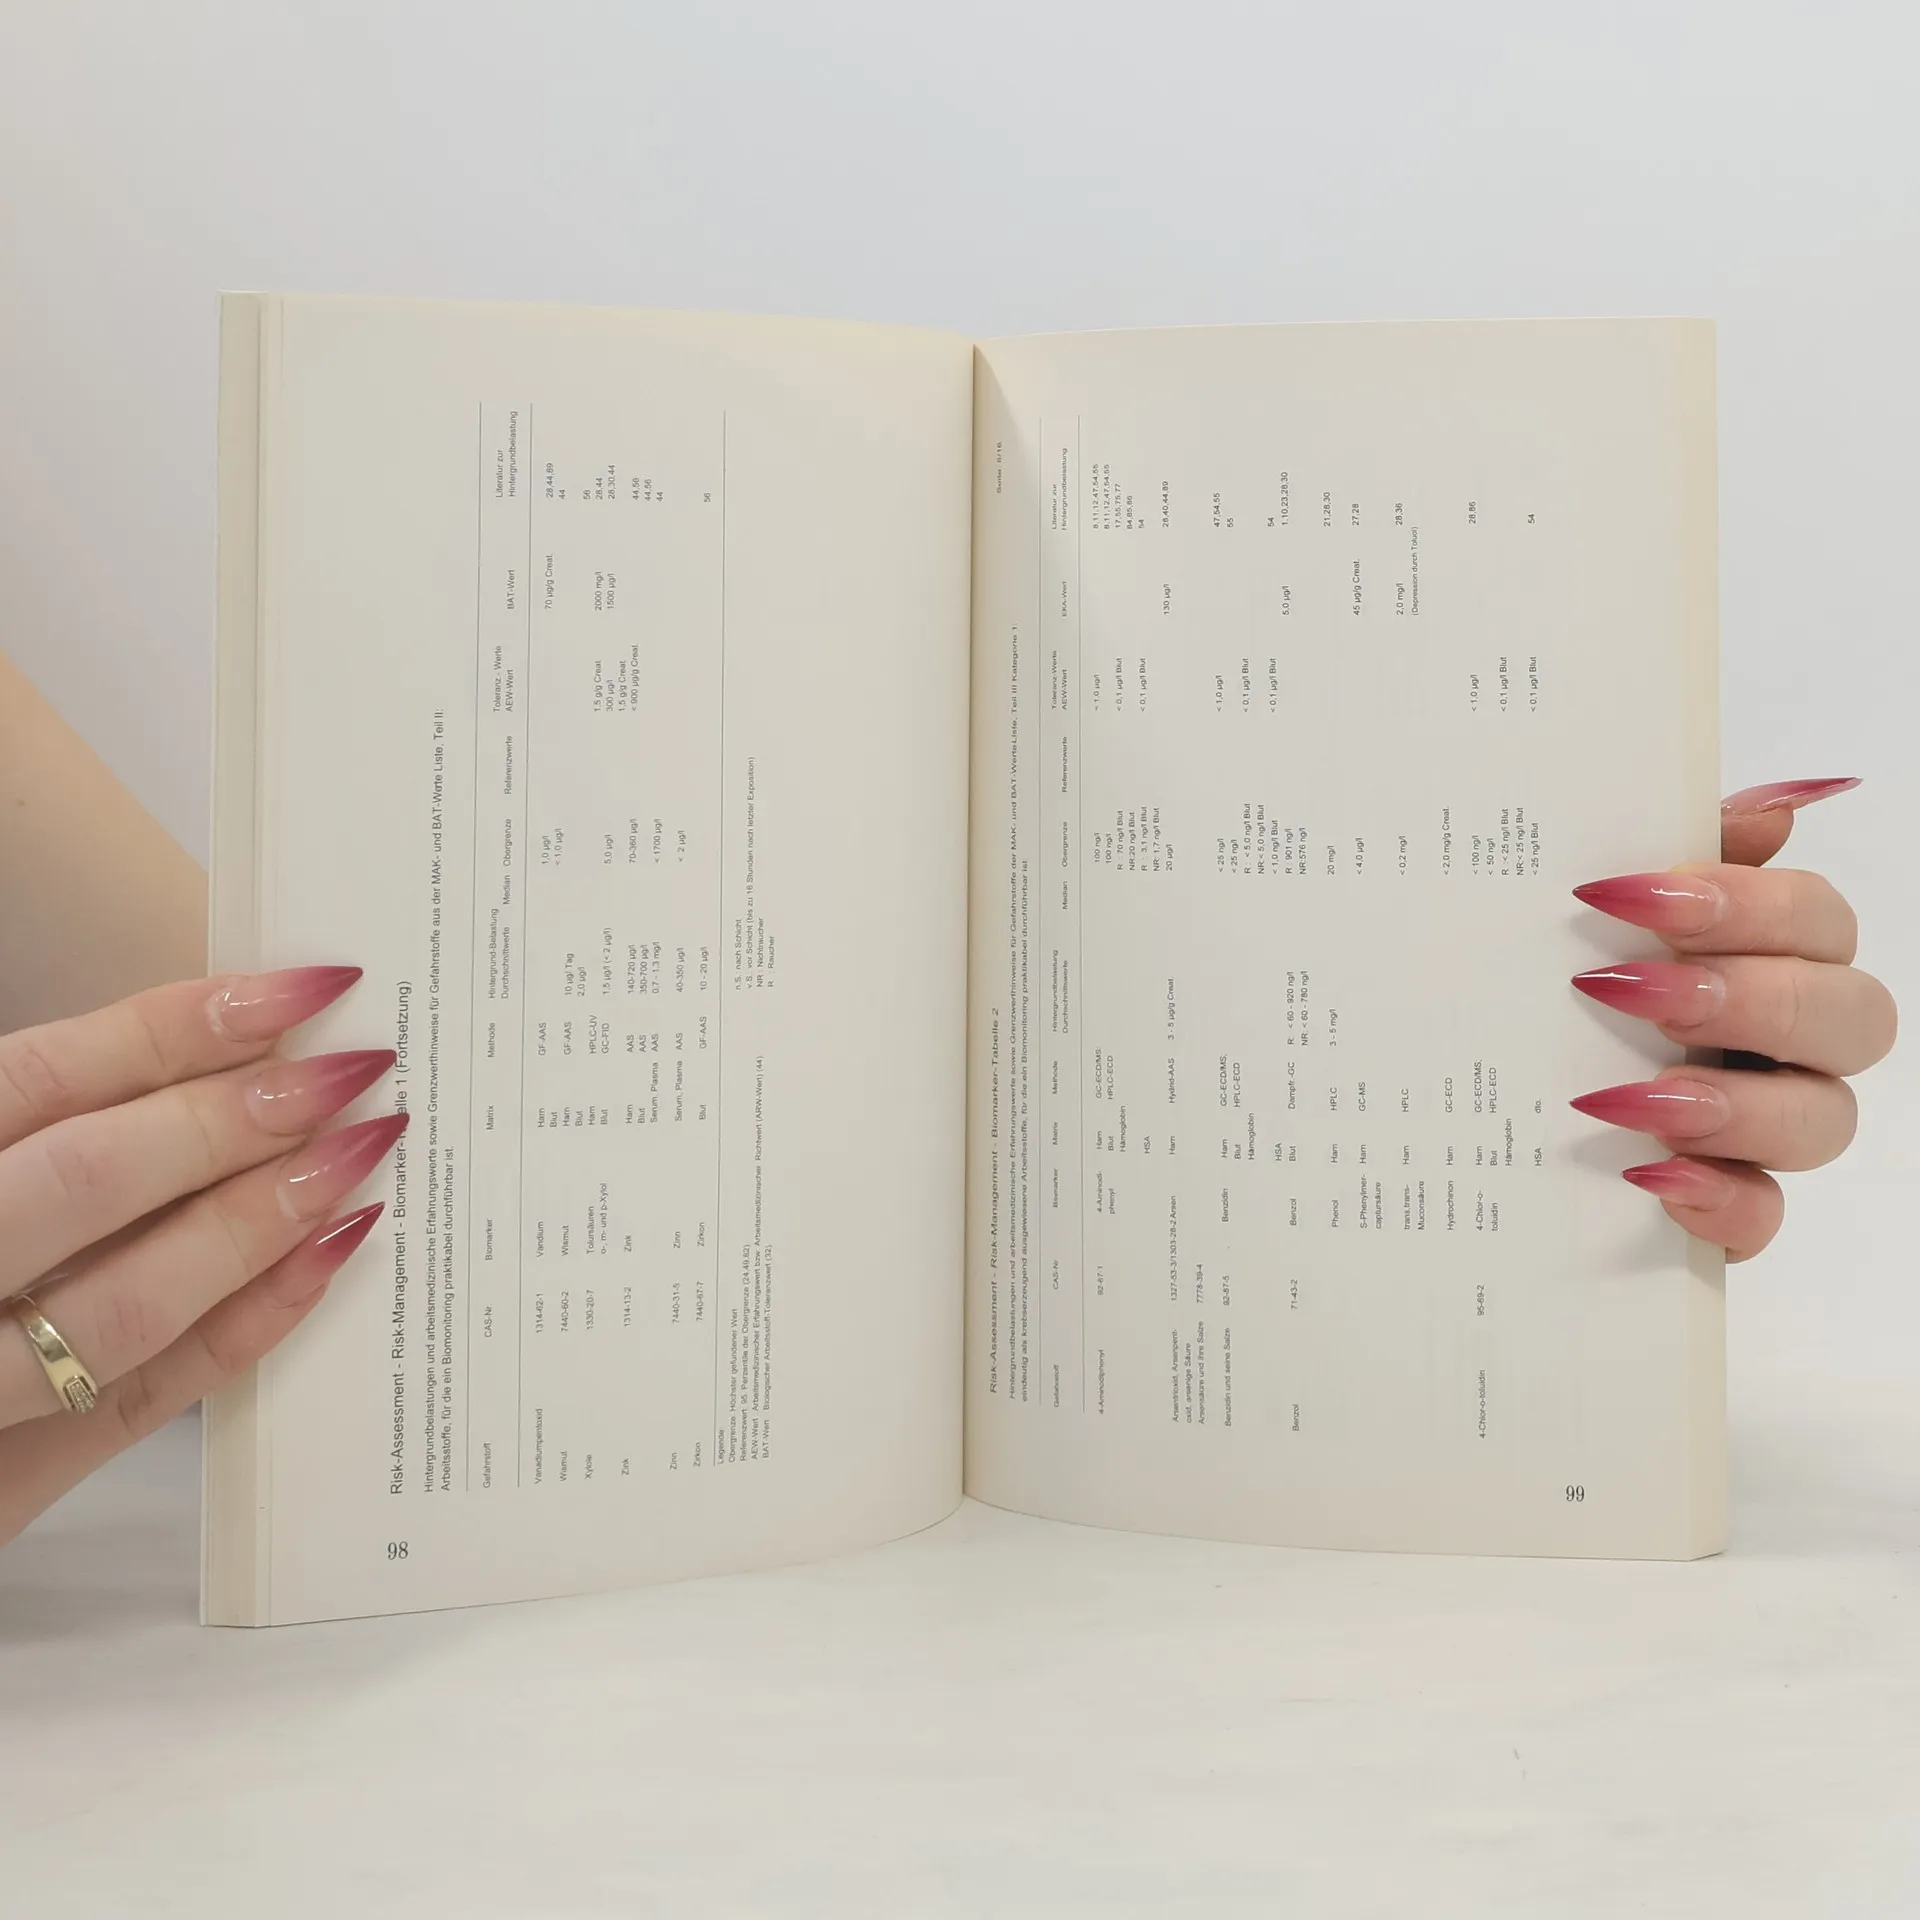 98
Risk-Assessment - Risk-Management - Biomarker- elle 1 (Fortsetzung)
Hintergrundbelastungen und arbeitsmedizinische Erfahrungswerte sowie Grenzwerthinweise für Gefahrstoffe aus der MAK- und BAT-Werte Liste, Teil II:
Arbeitsstoffe, für die ein Biomonitoring praktikabel durchführbar ist.
Gefahrstoff CAS-Nr. Biomarker Matrix Methode Hintergrund-Belastung Durchschnittswerte Median Obergrenze Referenzwerte Toleranz - Werte AEW-Wert BAT-Wert Literatur zur Hintergrundbelastung
Vanadiumpentoxid 1314-62-1 Vandium Harn GF-AAS 1,0 µg/l 70 µg/g Creat. 28,44,89
Blut < 1,0 µg/l 44
Wismut 7440-60-2 Wismut Harn GF-AAS 10 µg/ Tag
Blut 2,0 µg/l
Xylole 1330-20-7 Tolursäuren Harn HPLC-UV 1,5 g/g Creat. 2000 mg/l 56 28,44
o-, m- und p-Xylol Blut GC-FID 1,5 µg/l (< 2 µg/l) 5,0 µg/l 300 µg/l 1500 µg/l 28,30,44
1,5 g/g Creat.
Zink 1314-13-2 Zink Harn AAS 140-720 µg/l 70-360 µg/l < 900 µg/g Creat. 44,56
Blut AAS 350-700 µg/l 44,56
Serum, Plasma AAS 0,7 - 1,3 mg/l < 1700 µg/l 44
Zinn 7440-31-5 Zinn Serum, Plasma AAS 40-350 µg/l < 2 µg/l
Zirkon 7440-67-7 Zirkon Blut GF-AAS 10 - 20 µg/l 56
Legende
Obergrenze: Höchster gefundener Wert
Referenzwert: 95. Perzentile der Obergrenze (24,49,62)
AEW-Wert : Arbeitsmedizinischer Erfahrungswert bzw. Arbeitsmedizinischer Richtwert (ARW-Wert) (44)
BAT-Wert : Biologischer Arbeitsstoff-Toleranzwert (32)
n.S.: nach Schicht
v.S.: vor Schicht (bis zu 16 Stunden nach letzter Exposition)
NR : Nichtraucher
R : Raucher
Seite: 6/16
Risk-Assessment - Risk-Management - Biomarker-Tabelle 2
Hintergrundbelastungen und arbeitsmedizinische Erfahrungswerte sowie Grenzwerthinweise für Gefahrstoffe der MAK- und BAT-Werte Liste, Teil III Kategorie 1:
eindeutig als krebserzeugend ausgewiesene Arbeitsstoffe, für die ein Biomonitoring praktikabel durchführbar ist
Gefahrstoff CAS-Nr Biomarker Matrix Methode Hintergrundbelastung Durchschnittswerte Median Obergrenze Referenzwerte Toleranz-Werte AEW-Wert EKA-Wert Literatur zur Hintergrundbelastung
4-Aminodiphenyl 92-67-1 4-Aminodi- Harn GC-ECD/MS; 100 ng/l < 1,0 µg/l 8,11,12,47,54,55
phenyl Blut HPLC-ECD 100 ng/l 8,11,12,47,54,55
Hämoglobin R : 70 ng/l Blut < 0,1 µg/l Blut 17,55,75,77
NR:20 ng/l Blut 84,85,86
HSA R : 3,1 ng/l Blut < 0,1 µg/l Blut 54
NR: 1,7 ng/l Blut
Arsentrioxid, Arsenpent- 1327-53-3/1303-28-2 Arsen Harn Hydrid-AAS 3 - 5 µg/g Creat. 20 µg/l 130 µg/l 28,40,44,89
oxid, arsenige Säure
Arsensäure und ihre Salze 7778-39-4
Benzidin und seine Salze 92-87-5 Benzidin Harn GC-ECD/MS, < 25 ng/l < 1,0 µg/l 47,54,55
Blut HPLC-ECD < 25 ng/l 55
Hämoglobin R : < 5,0 ng/l Blut < 0,1 µg/l Blut
NR:< 5,0 ng/l Blut
HSA < 1,0 ng/l Blut < 0,1 µg/l Blut 54
Benzol 71-43-2 Benzol Blut Dampfr.-GC R: < 60 - 920 ng/l R : 901 ng/l 5,0 µg/l 1,10,23,28,30
NR: < 60 - 780 ng/l NR:576 ng/l
Phenol Harn HPLC 3 - 5 mg/l 20 mg/l 21,28,30
S-Phenylmer- Harn GC-MS < 4,0 µg/l 45 µg/g Creat. 27,28
captursäure
trans,trans- Harn HPLC < 0,2 mg/l 2,0 mg/l 28,36
Muconsäure (Depression durch Toluol)
Hydrochinon Harn GC-ECD < 2,0 mg/g Creat.
4-Chlor-o-toluidin 95-69-2 4-Chlor-o- Harn GC-ECD/MS, < 100 ng/l < 1,0 µg/l 28,86
toluidin Blut HPLC-ECD < 50 ng/l
Hämoglobin R : < 25 ng/l Blut < 0,1 µg/l Blut
NR:< 25 ng/l Blut
HSA dto. < 25 ng/l Blut < 0,1 µg/l Blut 54
99